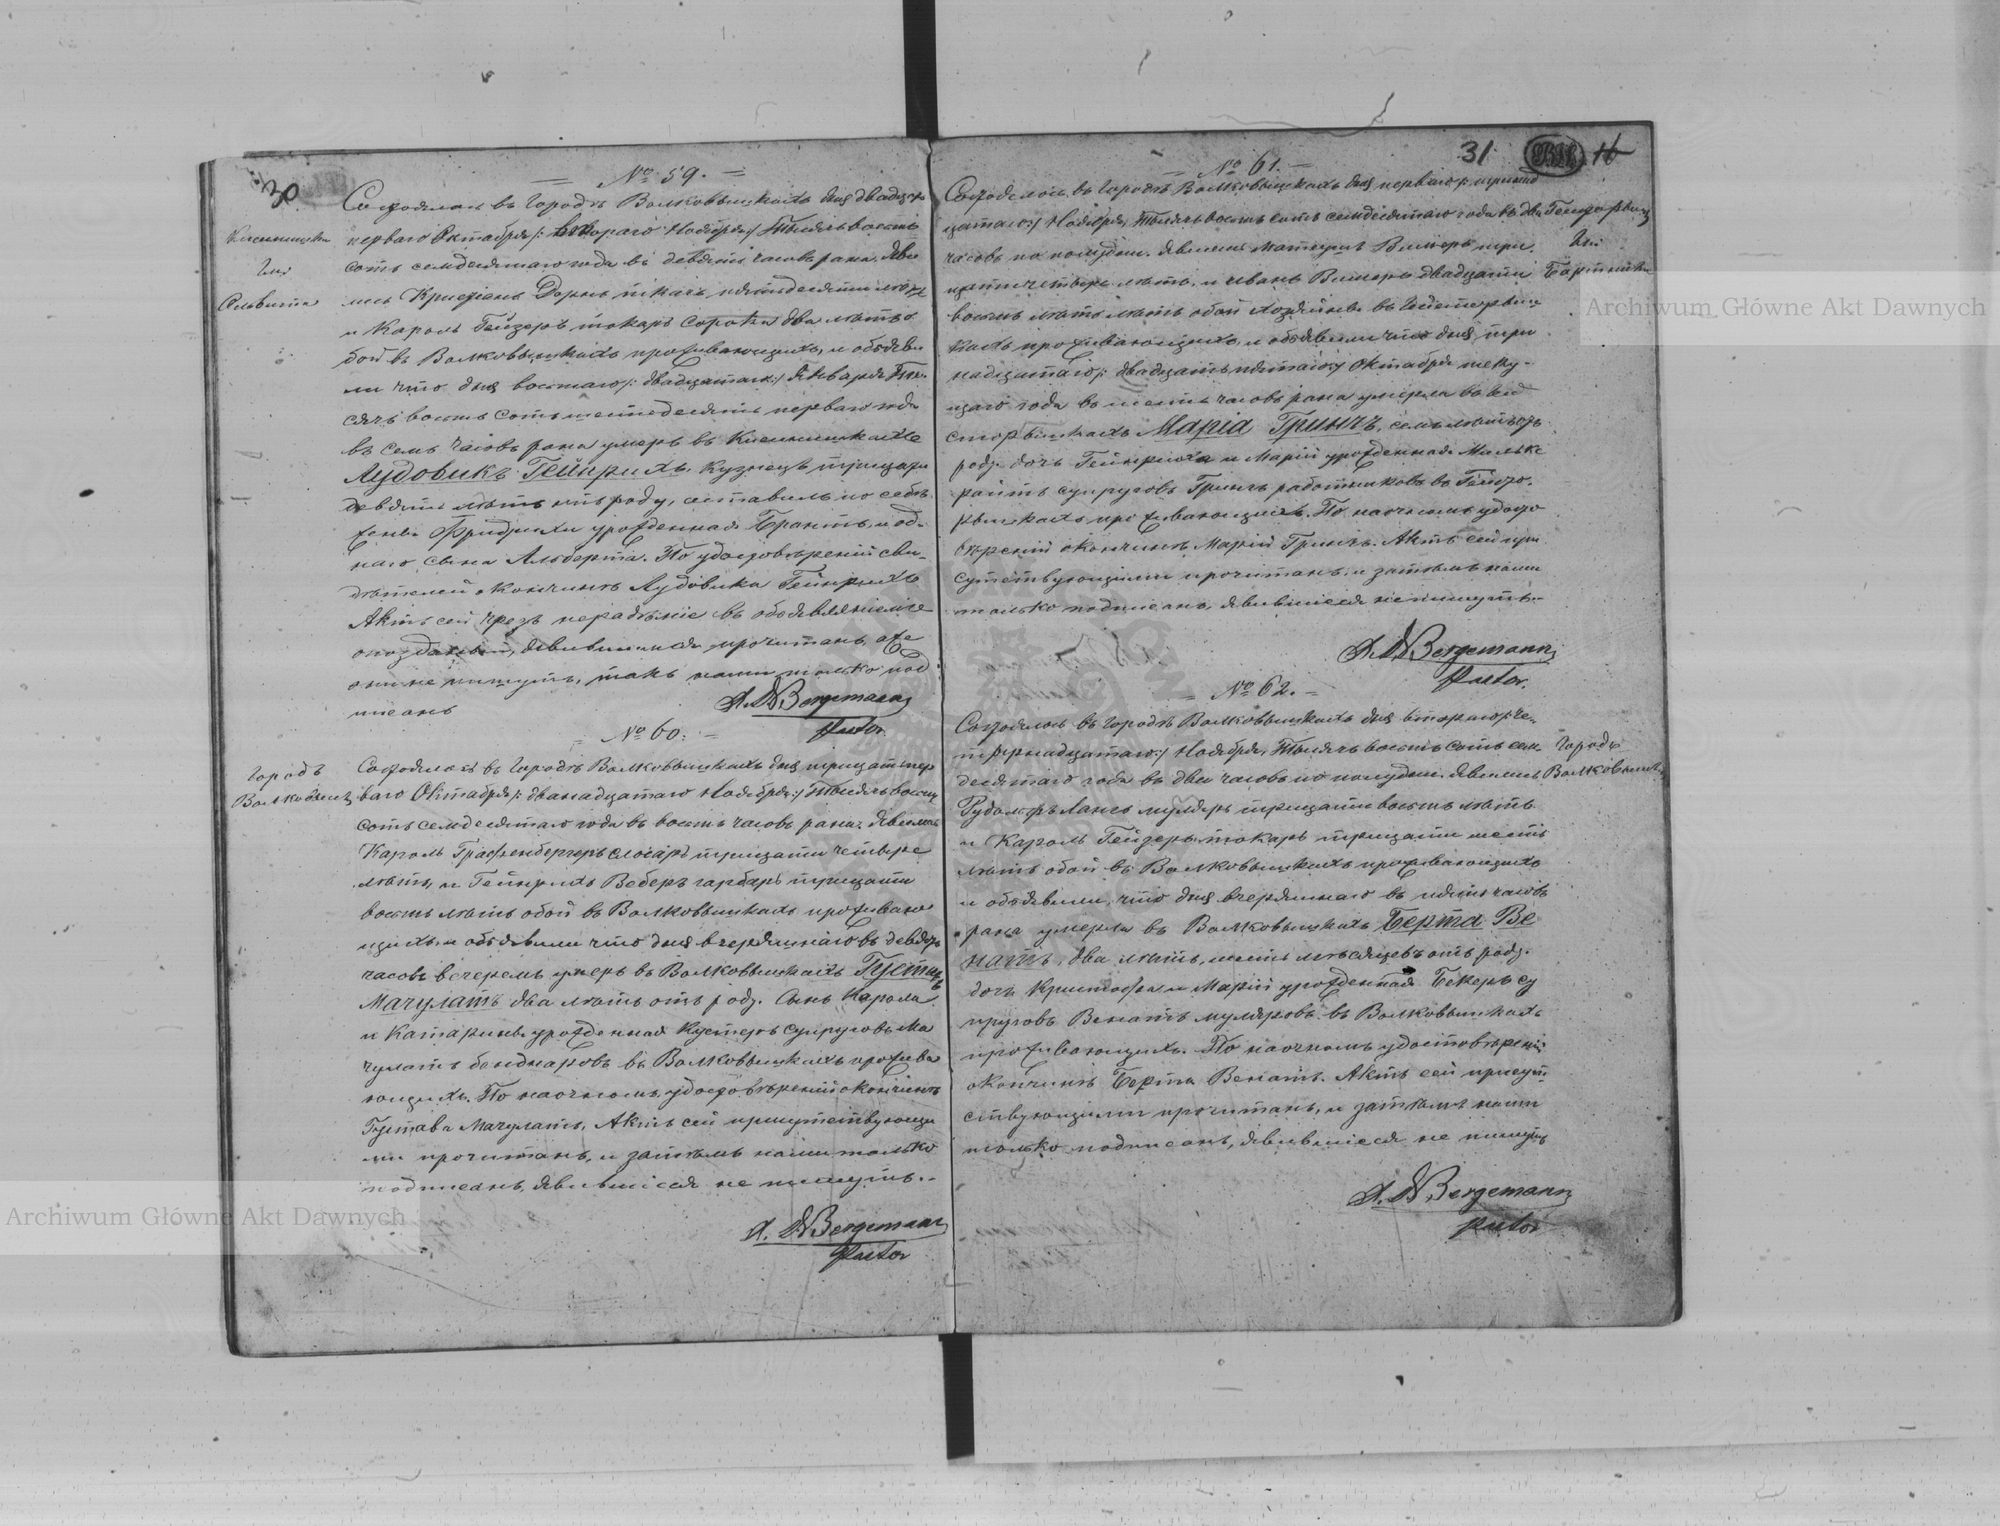 30
№ 59.
Состоялось въ городѣ Волковышкахъ дня двадцать
перваго Октября /: втораго Ноября :/ Тысяча восемь
сотъ семдесятаго года въ девять часовъ рана. Яви
лись Кристіянъ Дорнъ ткачь, пятьдесяти лѣтъ
и Кароль Гейзеръ токарь сорока два лѣтъ о
бой въ Волковышкахъ проживающихъ, и объяви
ли что дня восмаго /: двадцатаго :/ Января Ты
сячь восемь сотъ шестьдесять перваго года
въ семь часовъ рана умеръ въ
Лудовикъ Гейнрихъ, кузнецъ тридцати
девяти лѣтъ отъ роду, оставилъ по себѣ
жену Фридрику урожденная Брантъ, и од
наго сына Альберта. По удостовѣреніи сви
дѣтелей о кончинѣ Лудовика Гейнрихъ
Актъ сей чрезъ нерадѣніе въ объявленіи
опозданный, явившимся прочитанъ, а же
они не пишутъ, такъ нами только под
писанъ
A. W Bergemann
Pastor
№ 60.
Городъ
Волковышки
Состоялось въ городѣ Волковышкахъ дня тридцать пер
ваго Октября /: двѣнадцатаго Ноября :/ Тысяча восемь
сотъ семдесятаго года въ восемь часовъ рана. Явились
Кароль Графенбергеръ слесарь тридцати четыре
лѣтъ, и Гейнрихъ Веберъ гарбарь тридцати
восемь лѣтъ обой въ Волковышкахъ проживаю
щихъ, и объявили что дня вчерашняго въ девять
часовъ вечеромъ умеръ въ Волковышкахъ Густавъ
Мачулатъ два лѣтъ отъ роду. Сынъ Кароля
и Катарины урожденная Кустеръ супруговъ Ма
чулатъ бенднаровъ въ Волковышкахъ прожива
ющихъ. По наочномъ удостовѣреніи о кончинѣ
Густава Мачулатъ, Актъ сей присутствующи
ми прочитанъ, и затѣмъ нами только
подписанъ, явившіеся не пишутъ.
A. W Bergemann
Pastor
31
16
№ 61.
Состоялось въ городѣ Волковышкахъ дня перваго /: тринад
цатаго :/ Ноября, Тысяча восемь сотъ семдесятаго года въ два
часовъ по полудни. Явились Матеушъ Вишеръ три
цати четыре лѣтъ, и Иванъ Вишеръ двадцати
восемь лѣтъ обой хозяйновъ въ
кахъ проживающихъ, и объявили что дня три
надцатаго /: двадцать пятаго :/ Октября теку
щаго года въ шесть часовъ рана умерла въ
Марія Гринъ, семь лѣтъ отъ
роду. Дочь Гейнриха и Маріи урожденная
супруговъ Гринъ работниковъ въ
проживающихъ. По наочномъ удосто
вѣреніи о кончинѣ Маріи Гринъ. Актъ сей при
сутствующими прочитанъ, и затѣмъ нами
только подписанъ, явившіеся не пишутъ.
A. W Bergemann
Pastor.
№ 62.
Городъ
Волковышки
Состоялось въ городѣ Волковышкахъ дня втораго /: че
тырнадцатаго :/ Ноября, Тысяча восемь сотъ сем
десятаго года въ два часовъ по полудни. Явились
Рудольфъ Лангъ муляръ тридцати восемь лѣтъ
и Кароль Гейзеръ токарь тридцати шесть
лѣтъ обой въ Волковышкахъ проживающихъ
и объявили, что дня вчерашнаго въ пять часовъ
рана умерла въ Волковышкахъ Берта Ве
натъ, два лѣтъ, шесть мѣсяцевъ отъ роду.
дочь Кристофа и Маріи урожденная Бекеръ су
пруговъ Венатъ муляровъ въ Волковышкахъ
проживающихъ. По наочномъ удостовѣреніи
о кончинѣ Берты Венатъ. Актъ сей присут
ствующими прочитанъ, и затѣмъ нами
только подписанъ, явившіеся не пишутъ
A. W Bergemann
Pastor
Archiwum Główne Akt Dawnych
Archiwum Główne Akt Dawnych